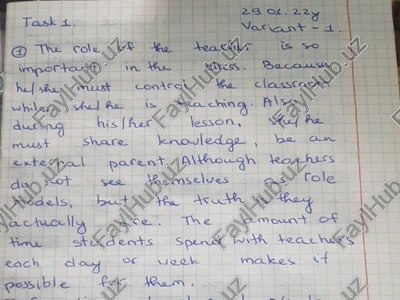 29.01.22y
Task 1. Variant - 1.
① The role of the teacher is so
important in the class. Because
he/she must control the classroom
while she/he is teaching. Also
during his/her lesson, she/he
must share knowledge, be an
external parent. Although teachers
do not see themselves as role
models, but the truth is they
actually are. The amount of
time students spend with teachers
each day or week makes it
possible for them.
FaylHub.uz
FaylHub.uz
FaylHub.uz
FaylHub.uz
FaylHub.uz
FaylHub.uz